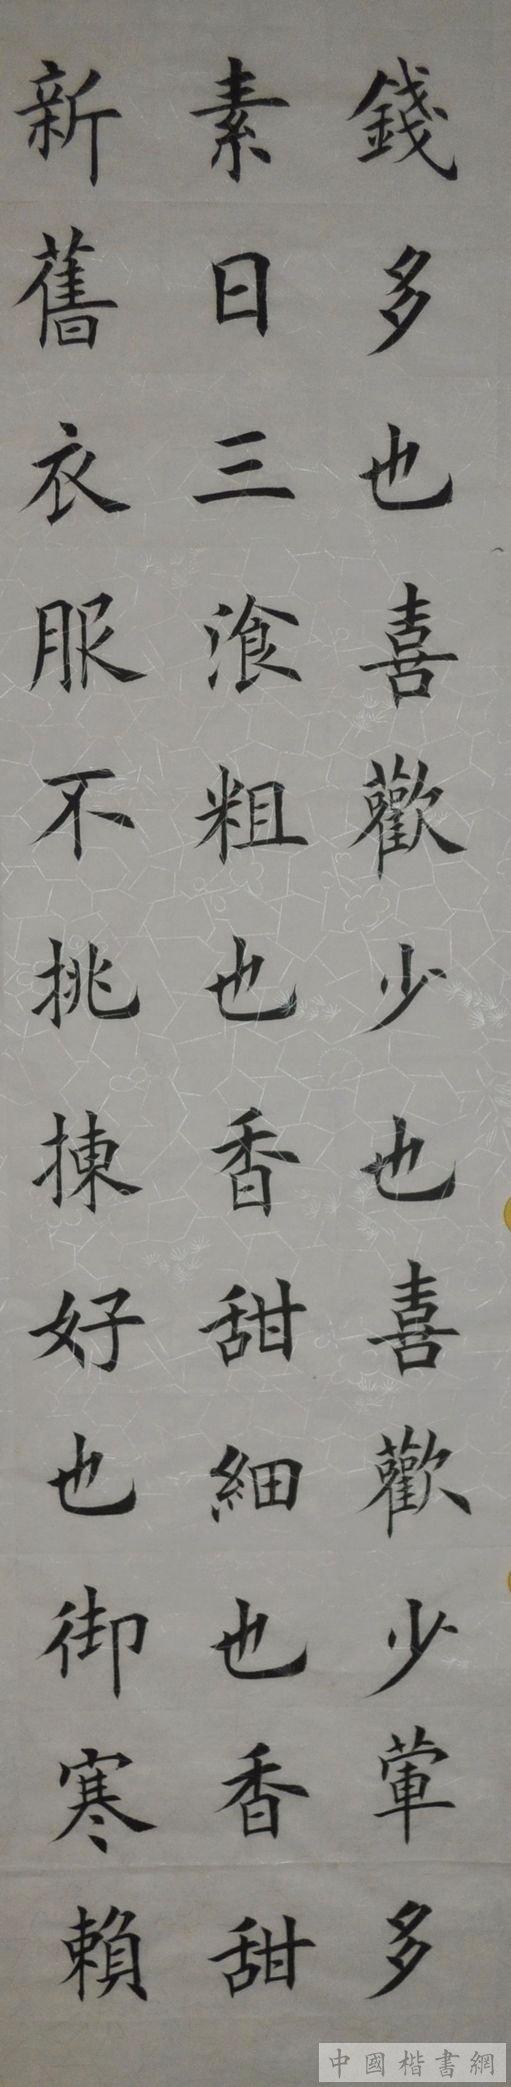 錢多也喜歡少也喜歡少葷多
素日三飡粗也香甜細也香甜
新舊衣服不挑揀好也御寒賴
中國楷書網